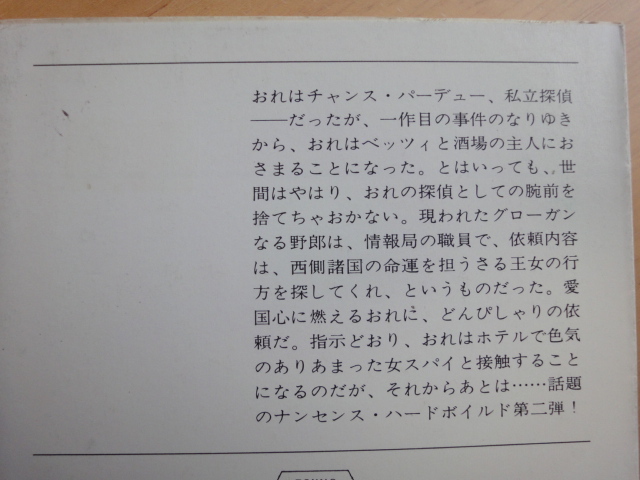 おれはチャンス・パーデュー、私立探偵
——だったが、一作目の事件のなりゆき
から、おれはベッツィと酒場の主人にお
さまることになった。とはいっても、世
間はやはり、おれの探偵としての腕前を
捨てちゃおかない。現われたグローガン
なる野郎は、情報局の職員で、依頼内容
は、西側諸国の命運を担うさる王女の行
方を探してくれ、というものだった。愛
国心に燃えるおれに、どんぴしゃりの依
頼だ。指示どおり、おれはホテルで色気
のありあまった女スパイと接触すること
になるのだが、それからあとは……話題
のナンセンス・ハードボイルド第二弾！